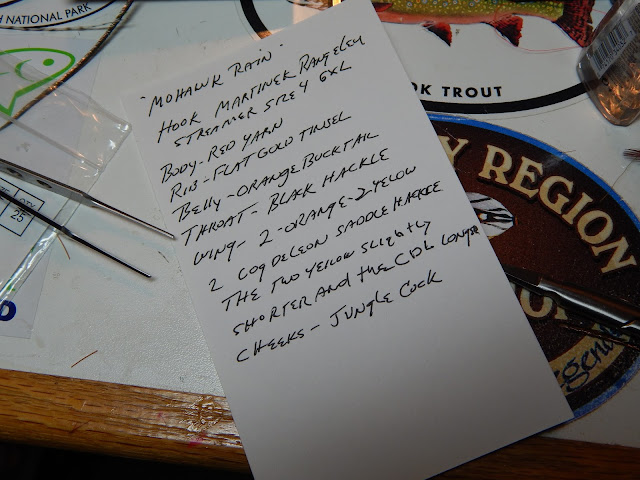 H NATIONAL PARK
OK TROUT
Y REGION
Legend
QTY
25
D
"MOHAWK RAIN"
HOOK MARTINEK RANGELEY
STREAMER SIZE 4 6XL
BODY- RED YARN
RIB- FLAT GOLD TINSEL
BELLY- ORANGE BUCKTAIL
THROAT- BLAK HACKLE
WING- 2-ORANGE-2-YELOW
2 COQ DELEON SADDLE HACKLE
THE TWO YELLOW SLIGHTLY
SHORTER AND THE CDL LONGER
CHEEKS- JUNGLE COCK